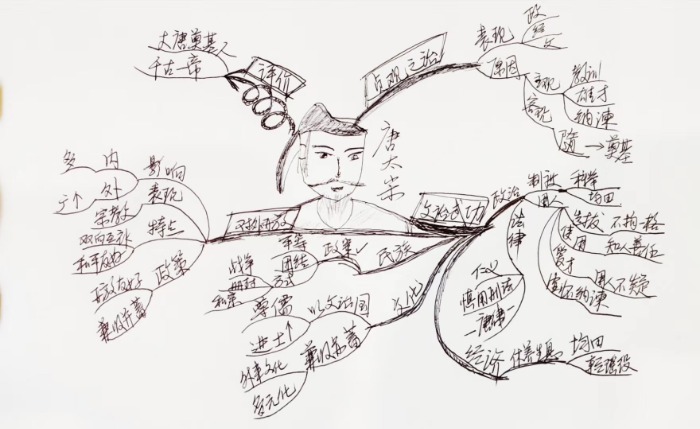 大唐奠基人
千古一帝
评价
贞观之治
表现
政
经
文
原因
主观
教训
雄才
纳谏
客观
隋→奠基
唐太宗
对外开放
影响
内
外
表现
特点
宗教
双向互补
政策
兼收并蓄
文治武功
政治
制度
科举
均田
用人
选拔
不拘一格
使用
知人善任
爱才
用人不疑
虚怀纳谏
法律
仁义
慎用刑法
唐律
经济
休养生息
均田
轻徭役
民族
政策
平等
团结
方式
战争
册封
和亲
文化
以文治国
尊儒
进士↑
兼收并蓄
外来文化
多元化